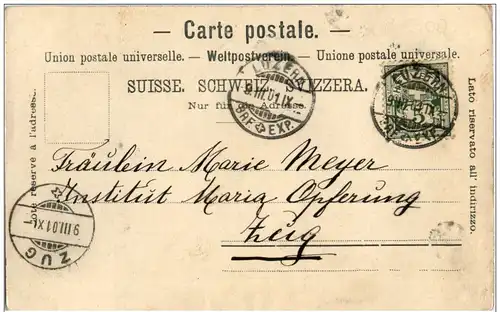 — Carte postale. —
Union postale universelle. — Weltpostverein. — Unione postale universale.
SUISSE. SCHWEIZ. SVIZZERA.
Nur für die Adresse.
Côté réservé à l'adresse.
Lato riservato all' indirizzo.
LUZERN
9.III.01.IX
BRF. EXP.
LUZERN
9.III.01.IX
BRF. EXP.
5
Fräulein Marie Meyer
Institut Maria Opferung
Zug
9.III.01.XI
ZUG